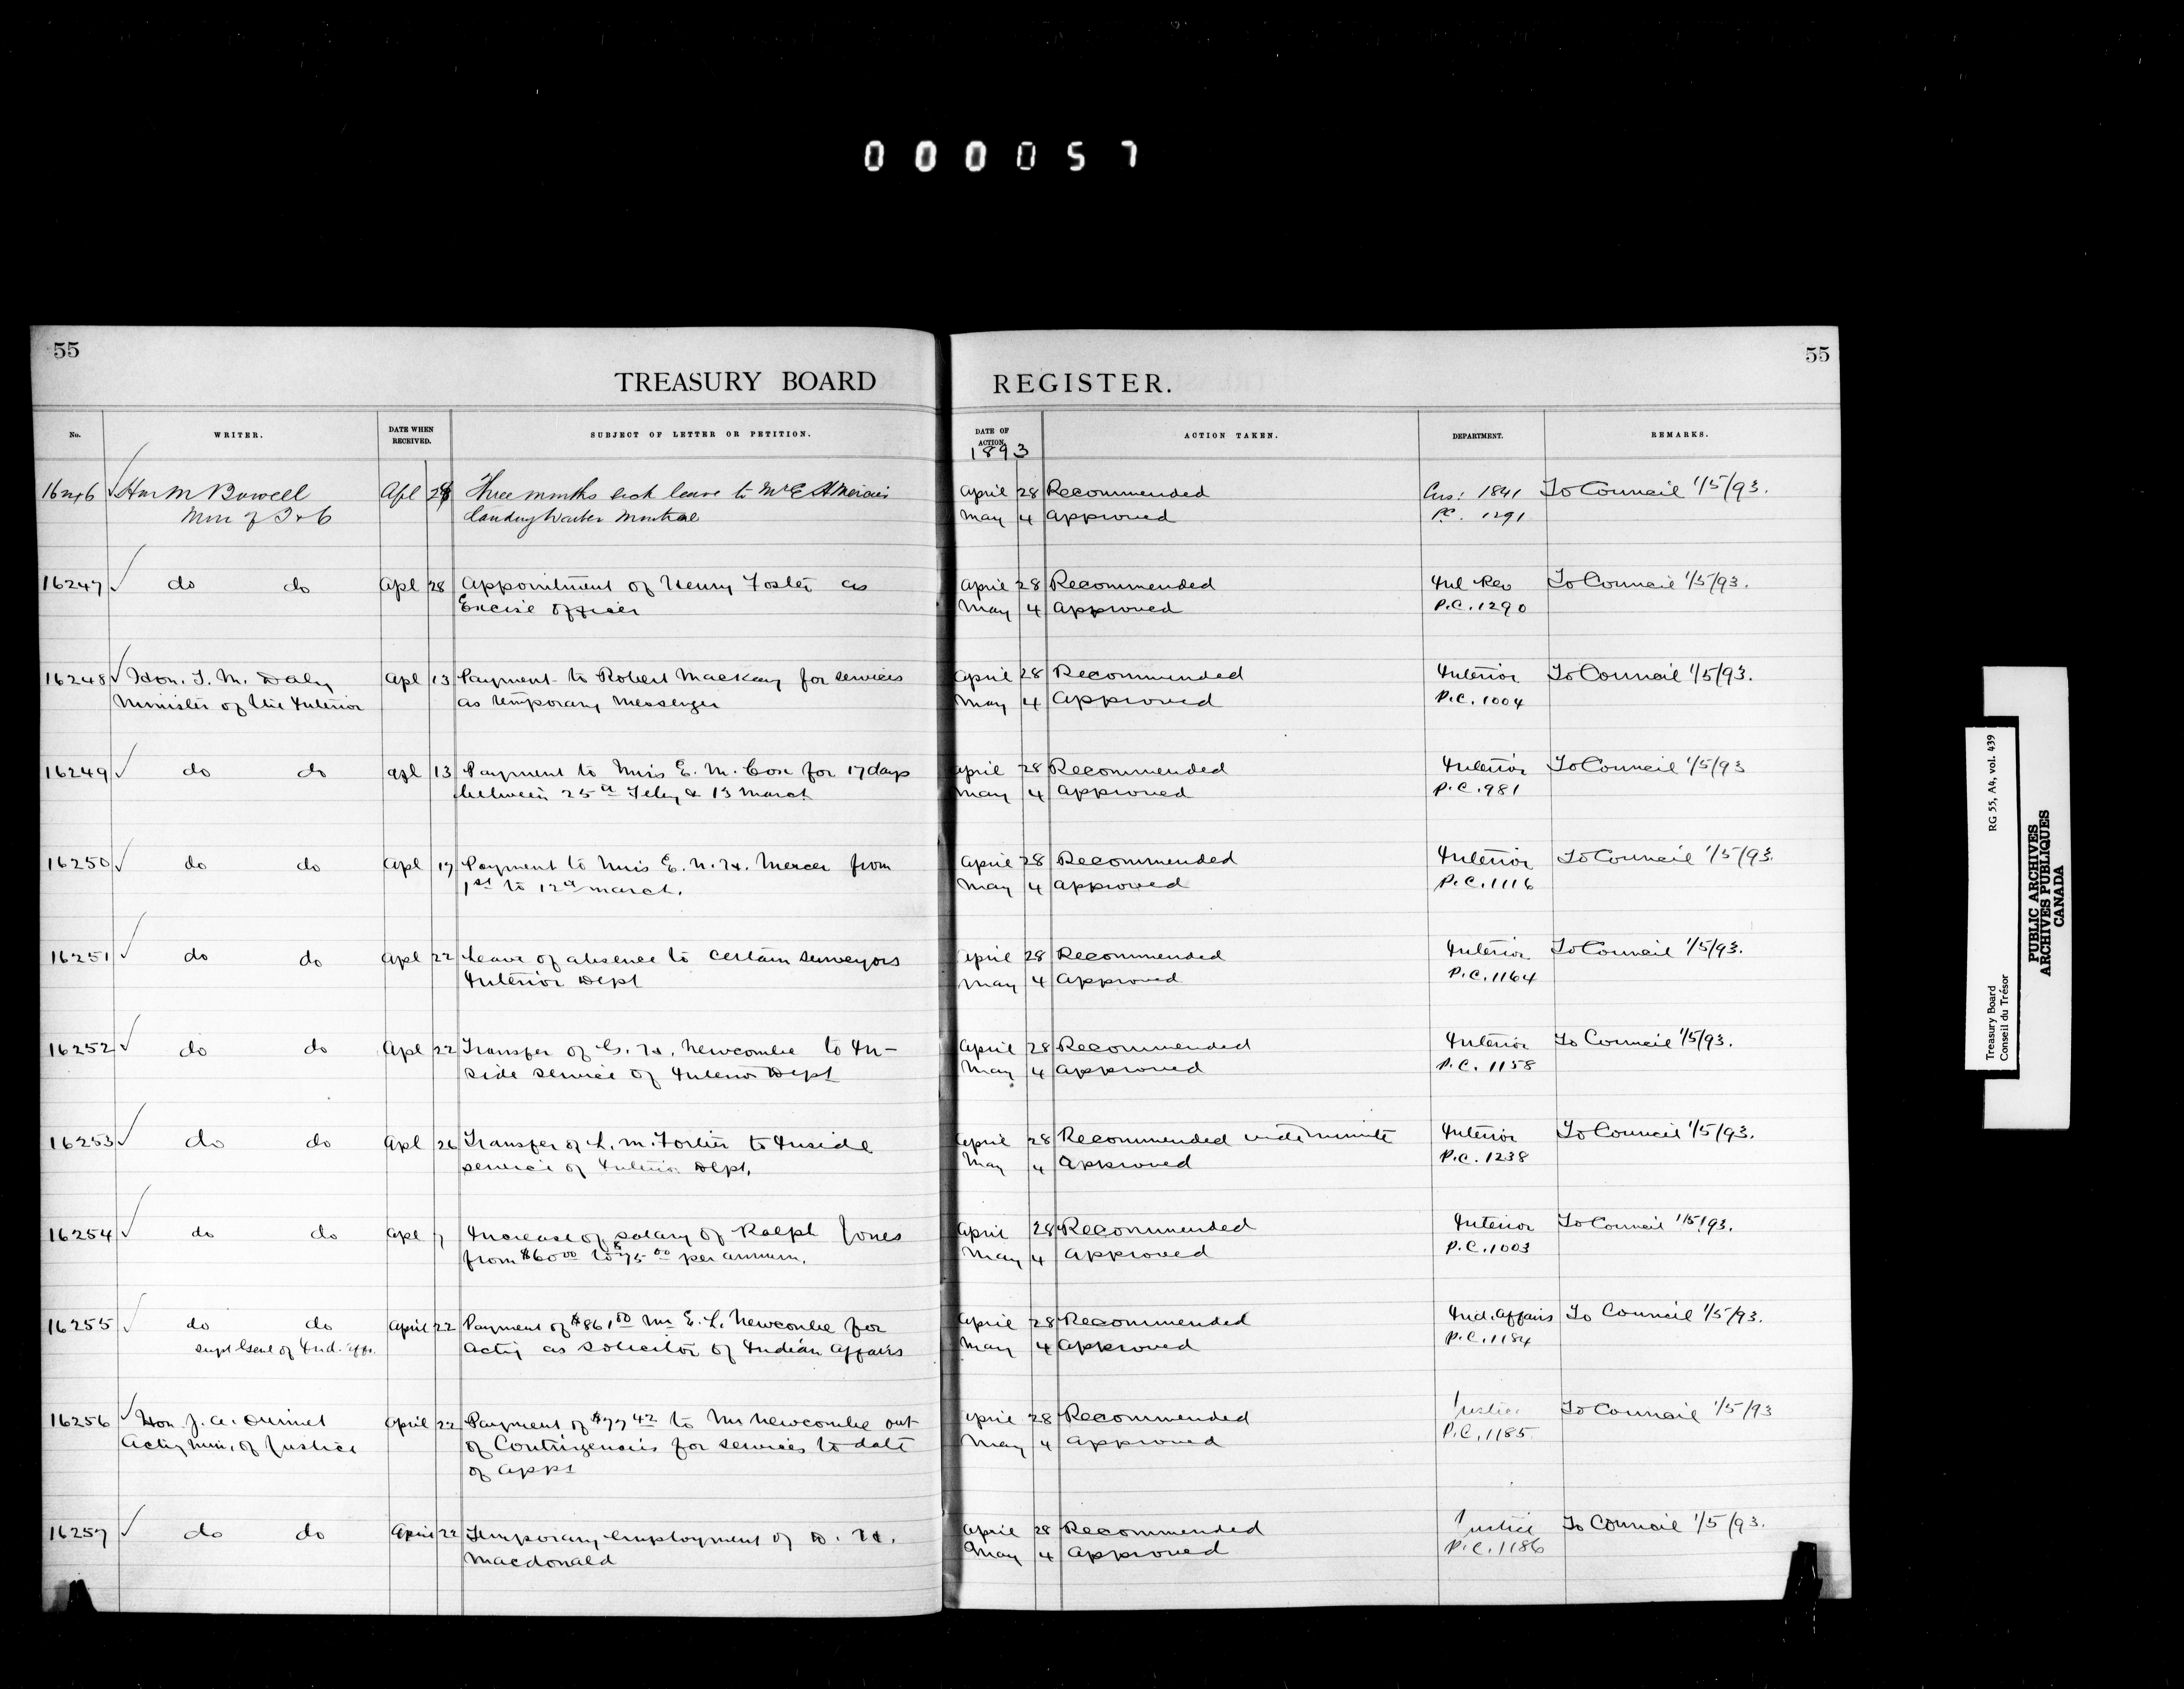 000057
55
55
TREASURY BOARD REGISTER.
No. WRITER. DATE WHEN RECEIVED. SUBJECT OF LETTER OR PETITION. DATE OF ACTION. ACTION TAKEN. DEPARTMENT. REMARKS.
1893
16246 Hon M Bowell Apl 28 Three months sick leave to Mr E A April 28 Recommended Cus: 1841 To Council 1/5/93.
Min of T & C Landing Waiter Montreal May 4 Approved P.C. 1291
16247 do do Apl 28 Appointment of Henry Foster as April 28 Recommended Inl Rev To Council 1/5/93.
Excise Officer May 4 Approved P.C. 1290
16248 Hon. T. M. Daly Apl 13 Payment to Robert Mackay for services April 28 Recommended Interior To Council 1/5/93.
Minister of the Interior as temporary Messenger May 4 Approved P.C. 1004
16249 do do Apl 13 Payment to Miss E. M. Cox for 17 days April 28 Recommended Interior To Council 1/5/93
between 25th Feby & 13 March May 4 Approved P.C. 981
16250 do do Apl 17 Payment to Miss E. N. H. Mercer from April 28 Recommended Interior To Council 1/5/93.
1st to 12th March. May 4 Approved P.C. 1116
16251 do do Apl 22 Leave of absence to certain surveyors April 28 Recommended Interior To Council 1/5/93.
Interior Dept May 4 Approved P.C. 1164
16252 do do Apl 22 Transfer of G. H. Newcombe to In- April 28 Recommended Interior To Council 1/5/93.
side service of Interior Dept May 4 Approved P.C. 1158
16253 do do Apl 26 Transfer of L. M. Fortier to Inside April 28 Recommended vide minute Interior To Council 1/5/93.
service of Interior Dept. May 4 Approved P.C. 1238
16254 do do Apl 7 Increase of salary of Ralph Jones April 28 Recommended Interior To Council 1/5/93.
from $60 00 to $75 00 per annum. May 4 Approved P.C. 1003
16255 do do April 22 Payment of $861 00 Mr E. L. Newcombe for April 28 Recommended Ind. Affairs To Council 1/5/93.
Supt Genl of Ind. Affs. Actg as Solicitor of Indian Affairs May 4 Approved P.C. 1184
16256 Hon. J. A. Ouimet April 22 Payment of $77 42 to Mr Newcombe out April 28 Recommended Justice To Council 1/5/93
Actg Min. of Justice of Contingencies for services to date May 4 Approved P.C. 1185
of appt
16257 do do April 22 Temporary employment of D. H. April 28 Recommended Justice To Council 1/5/93.
Macdonald May 4 Approved P.C. 1186
Treasury Board RG 55, A4, vol. 439
Conseil du Trésor
PUBLIC ARCHIVES
ARCHIVES PUBLIQUES
CANADA